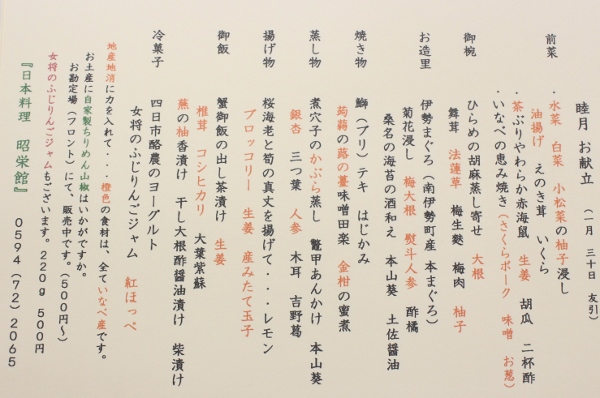 睦月 お献立 (一月 三十日 友引)
前菜 ・水菜 白菜 小松菜の柚子浸し
油揚げ えのき茸 いくら
・茶ぶりやわらか赤海鼠 生姜 胡瓜 二杯酢
・いなべの恵み焼き(さくらポーク 味噌 お葱)
御椀 ひらめの胡麻蒸し寄せ 大根
舞茸 法蓮草 梅生麩 梅肉 柚子
お造里 伊勢まぐろ(南伊勢町産 本まぐろ)
菊花浸し 梅大根 熨斗人参 酢橘
桑名の海苔の酒和え 本山葵 土佐醤油
焼き物 鰤(ブリ)テキ はじかみ
蒟蒻の蕗の薹味噌田楽 金柑の蜜煮
蒸し物 煮穴子のかぶら蒸し 鼈甲あんかけ 本山葵
銀杏 三つ葉 人参 木耳 吉野葛
揚げ物 桜海老と筍の真丈を揚げて・・・レモン
ブロッコリー 生姜 産みたて玉子
御飯 蟹御飯の出し茶漬け 生姜
椎茸 コシヒカリ 大葉紫蘇
蕪の柚香漬け 干し大根酢醤油漬け 柴漬け
冷菓子 四日市酪農のヨーグルト
女将のふじりんごジャム 紅ほっぺ
地産地消に力を入れて・・・橙色の食材は、全ていなべ産です。
お土産に自家製ちりめん山椒はいかがですか。
お勘定場(フロント)にて、販売中です。(500円~)
女将のふじりんごジャムもございます。220g 500円
『日本料理 昭栄館』 0594(72)2065